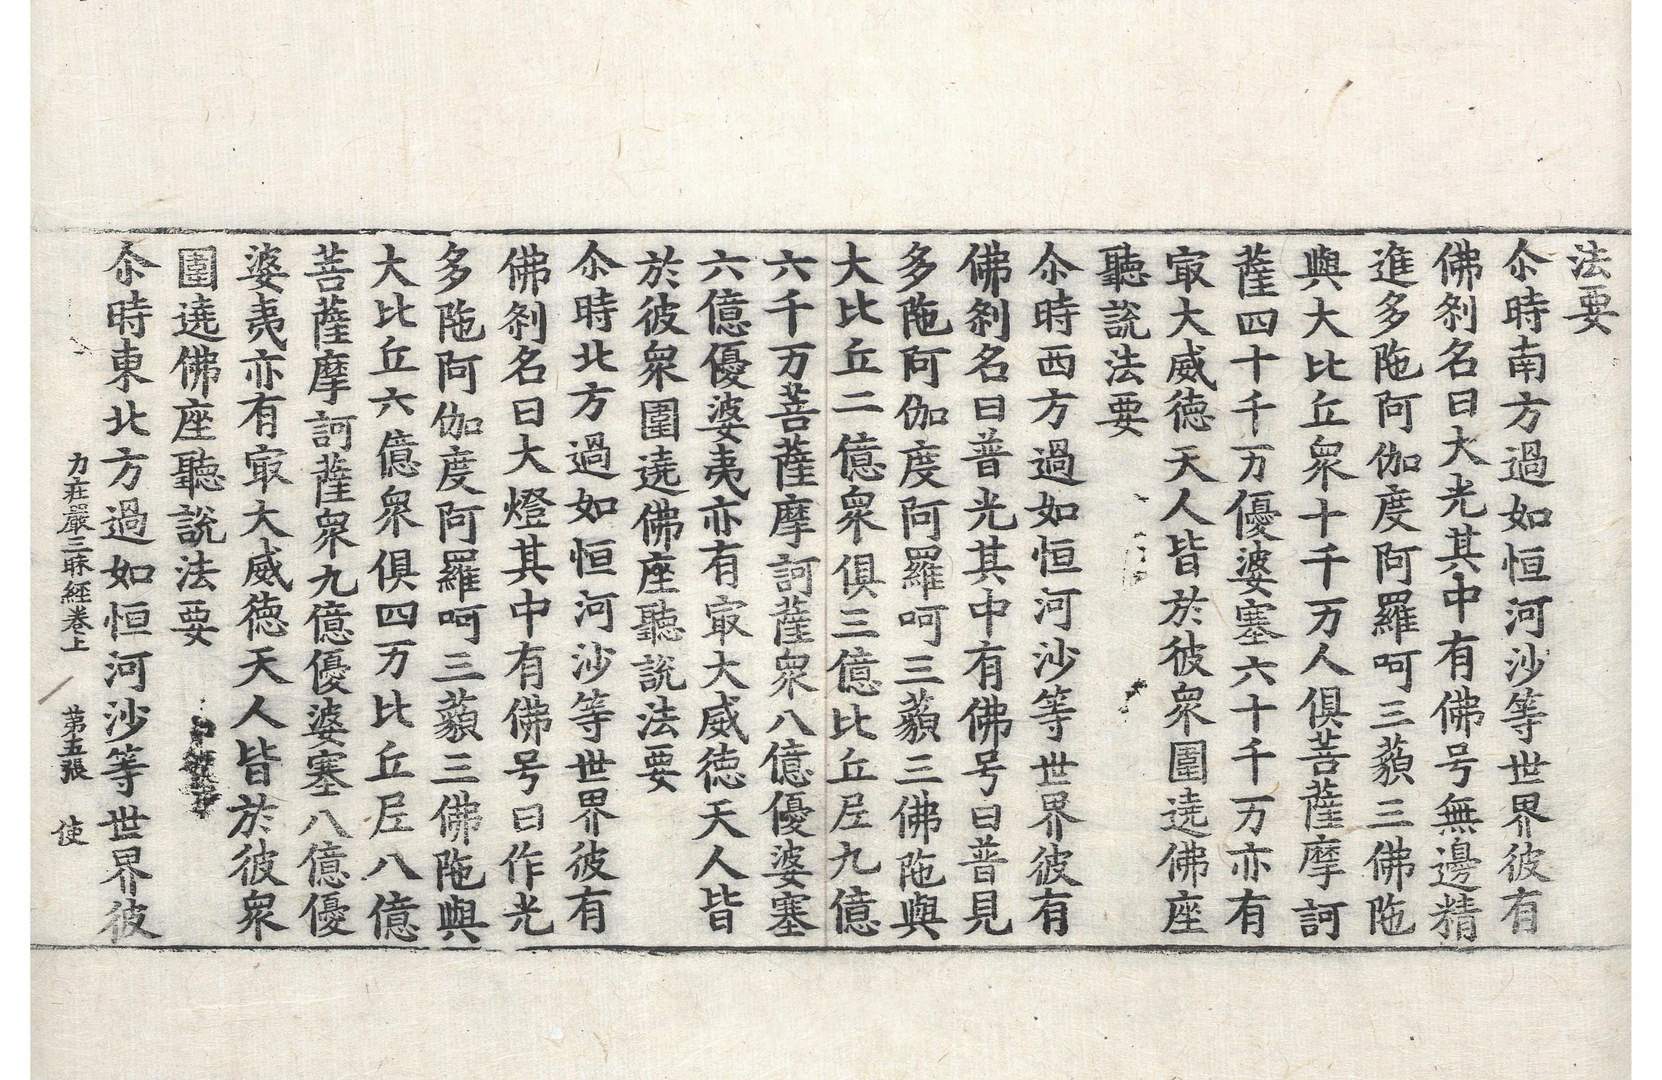 法要
尒時南方過如恒河沙等世界彼有
佛刹名曰大光其中有佛号無邊精
進多陁阿伽度阿羅呵三藐三佛陁
與大比丘衆十千万人俱菩薩摩訶
薩四十千万優婆塞六十千万亦有
㝡大威德天人皆於彼衆圍遶佛座
聽說法要
尒時西方過如恒河沙等世界彼有
佛刹名曰普光其中有佛号曰普見
多陁阿伽度阿羅呵三藐三佛陁與
大比丘二億衆俱三億比丘尼九億
六千万菩薩摩訶薩衆八億優婆塞
六億優婆夷亦有㝡大威德天人皆
於彼衆圍遶佛座聽說法要
尒時北方過如恒河沙等世界彼有
佛刹名曰大燈其中有佛号曰作光
多陁阿伽度阿羅呵三藐三佛陁與
大比丘六億衆俱四万比丘尼八億
菩薩摩訶薩衆九億優婆塞八億優
婆夷亦有㝡大威德天人皆於彼衆
圍遶佛座聽說法要
尒時東北方過如恒河沙等世界彼
力庄嚴三昧経卷上 第五張 使